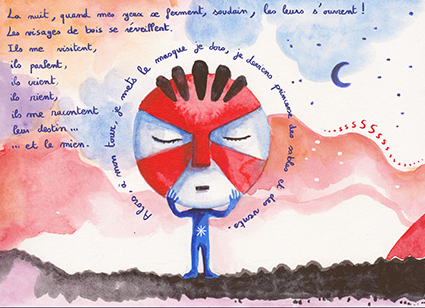 La nuit, quand mes yeux se ferment, soudain, les leurs s'ouvrent !
Les visages de bois se réveillent.
Ils me visitent,
ils parlent,
ils crient,
ils rient,
ils me racontent
leur destin...
... et le mien.
Alors, à mon tour, je mets le masque je dors, je deviens princesse des sables et des vents.
ssssSSSsss